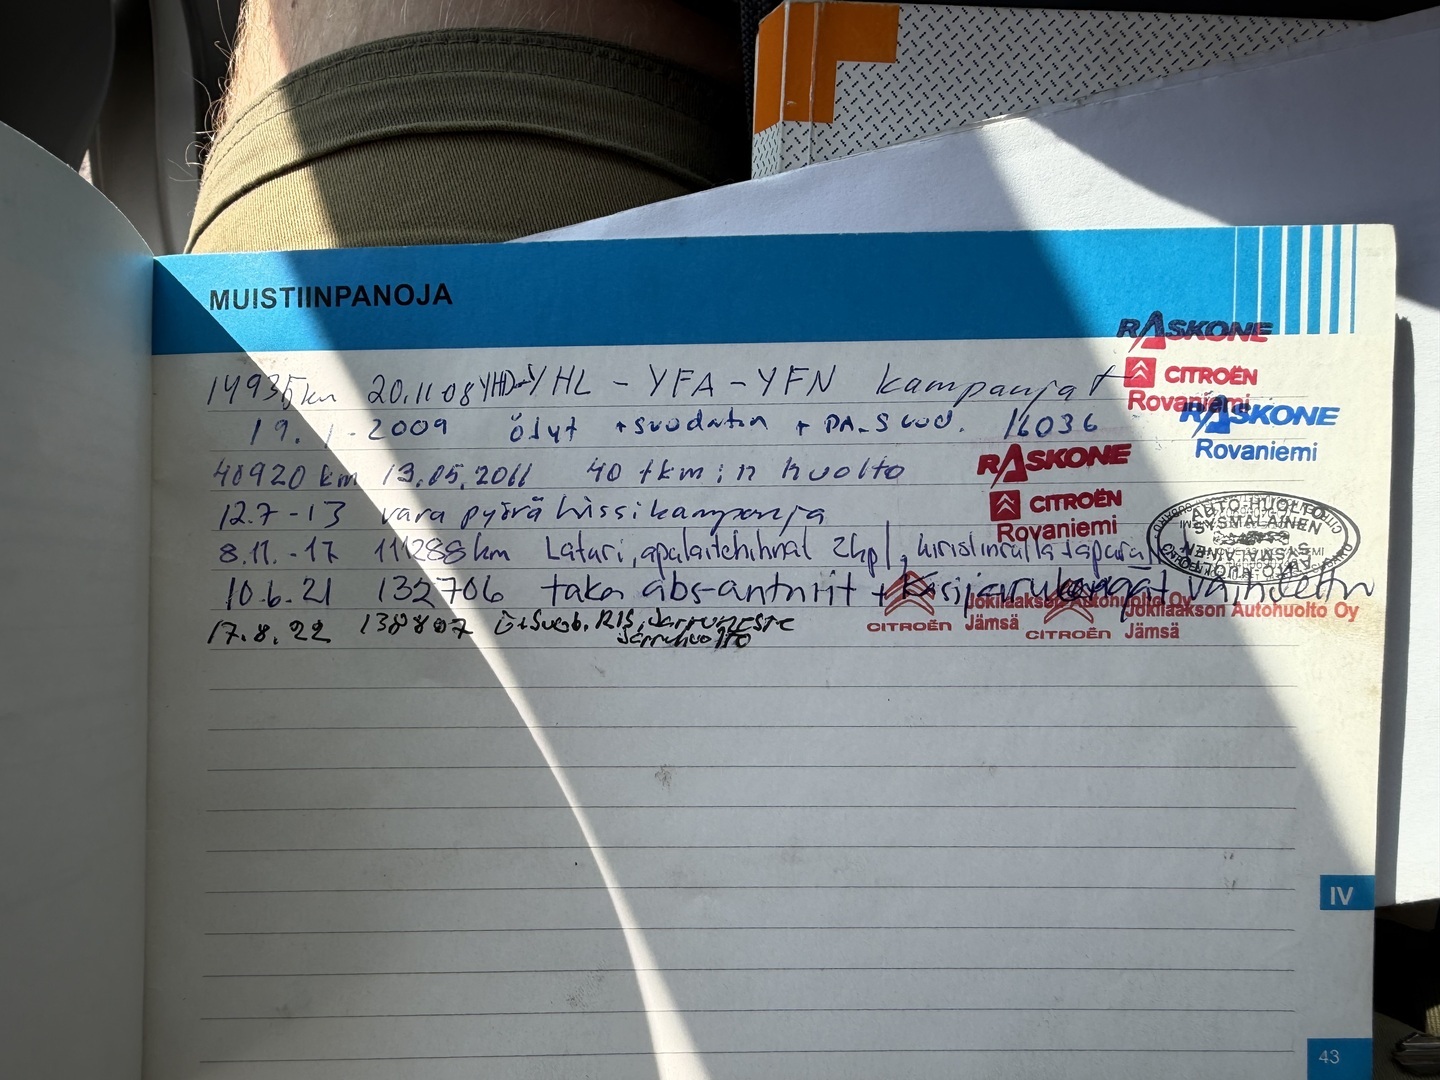 MUISTIINPANOJA
RASKONE
CITROËN
Rovaniemi
14935km 20.11.08 YHD-YHL - YFA - YFN kampanjat
19.1-2009 öljyt + suodatin + PA.Suod. 16036
RASKONE
Rovaniemi
40920 km 13.05.2011 40 tkm:n huolto
RASKONE
CITROËN
Rovaniemi
12.7-13 vara pyörä hissikampanja
AUTO-HUOLTO
SYSMÄLAINEN
8.11.-17 111288km Laturi, apulaitehihnat 2kpl, kiristinrulla
10.6.21 132706 taka abs-anturit + Käsijarrulangat vaihdettu
Jokilaakson Autohuolto Oy
CITROËN Jämsä
Jokilaakson Autohuolto Oy
CITROËN Jämsä
17.8.22 138807 Ö+Suod. RIS, Jarruneste
Jarruhuolto
IV
43